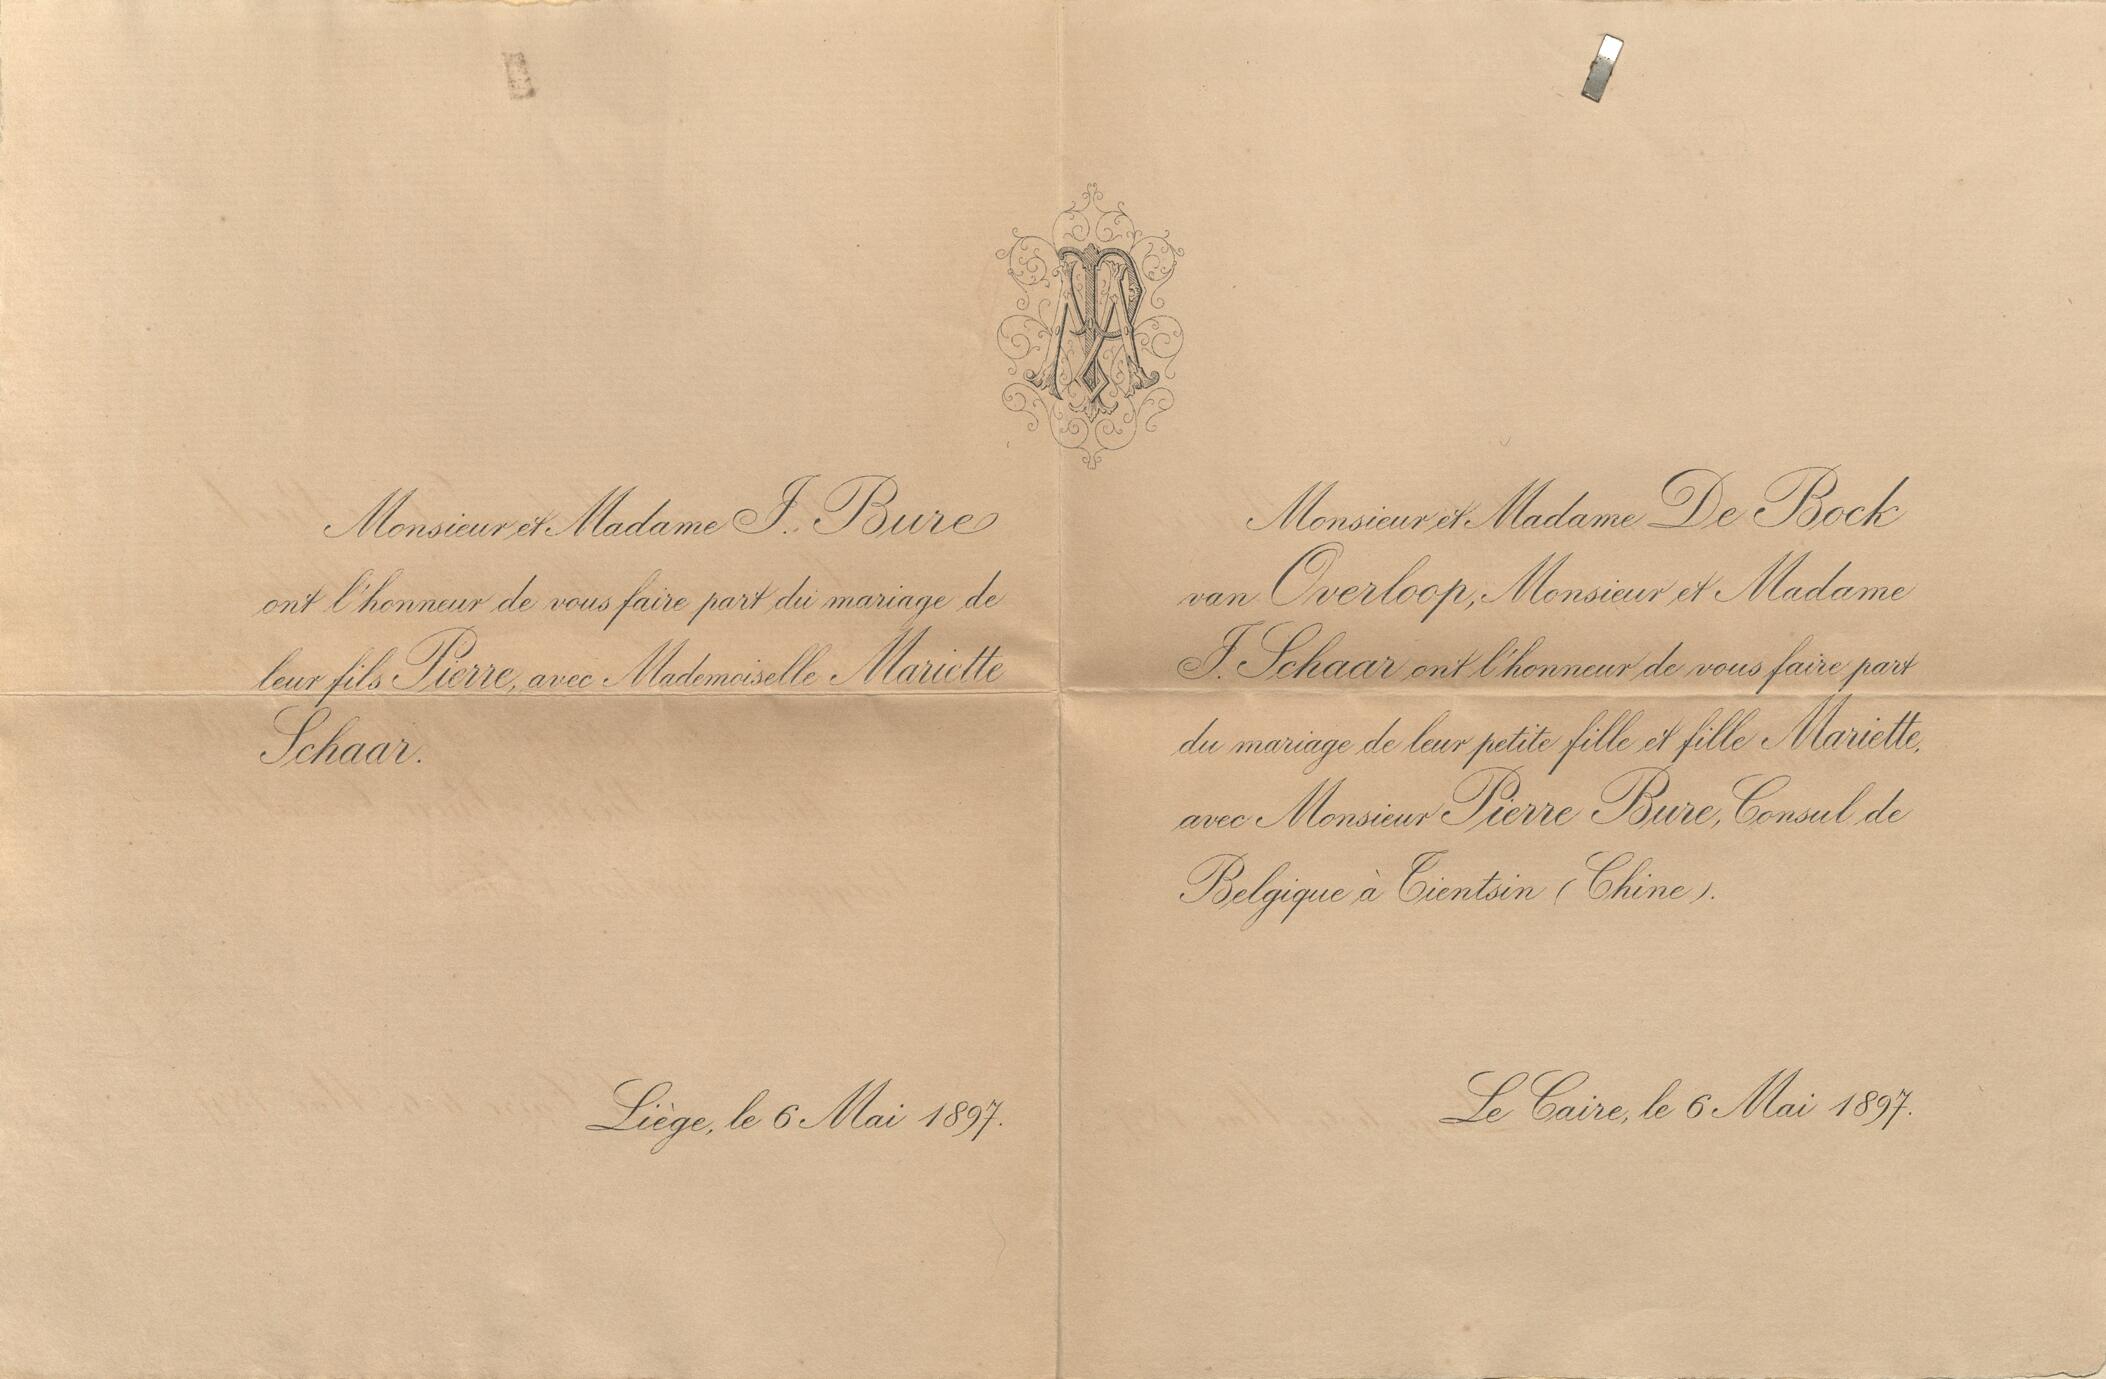 Monsieur et Madame J. Bure
ont l'honneur de vous faire part du mariage de
leur fils Pierre, avec Mademoiselle Mariette
Schaar.
Liège, le 6 Mai 1897.
Monsieur et Madame De Bock
van Overloop, Monsieur et Madame
J. Schaar ont l'honneur de vous faire part
du mariage de leur petite fille et fille Mariette,
avec Monsieur Pierre Bure, Consul de
Belgique à Tientsin (Chine).
Le Caire, le 6 Mai 1897.